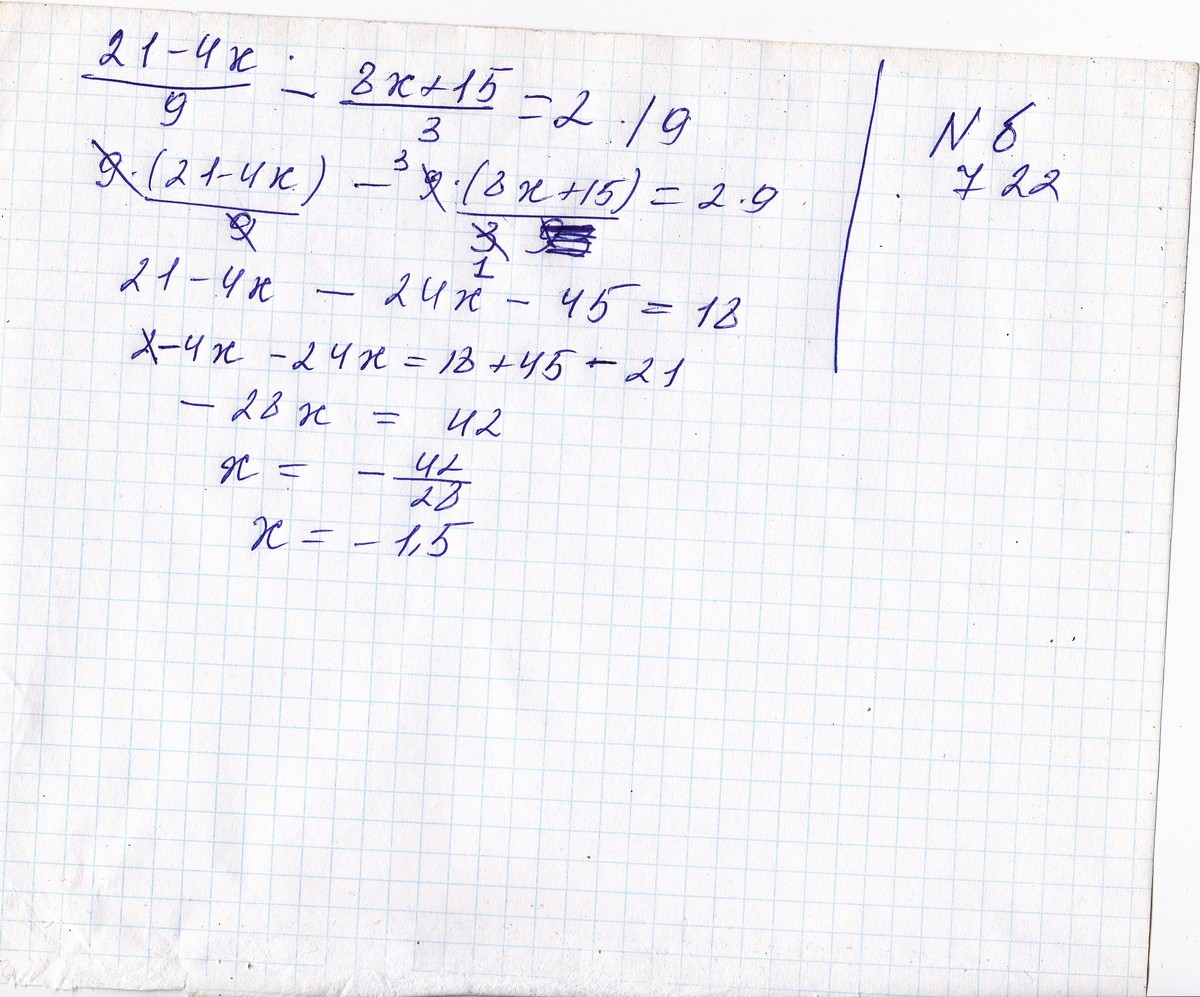 (21-4x)/9 - (8x+15)/3 = 2 ·/9
9·(21-4x)/9 - ³ 9·(8x+15)/3 = 2·9
1
21-4x - 24x - 45 = 18
-4x -24x = 18+45-21
-28x = 42
x = -42/28
x = -1,5
N 6
7 22